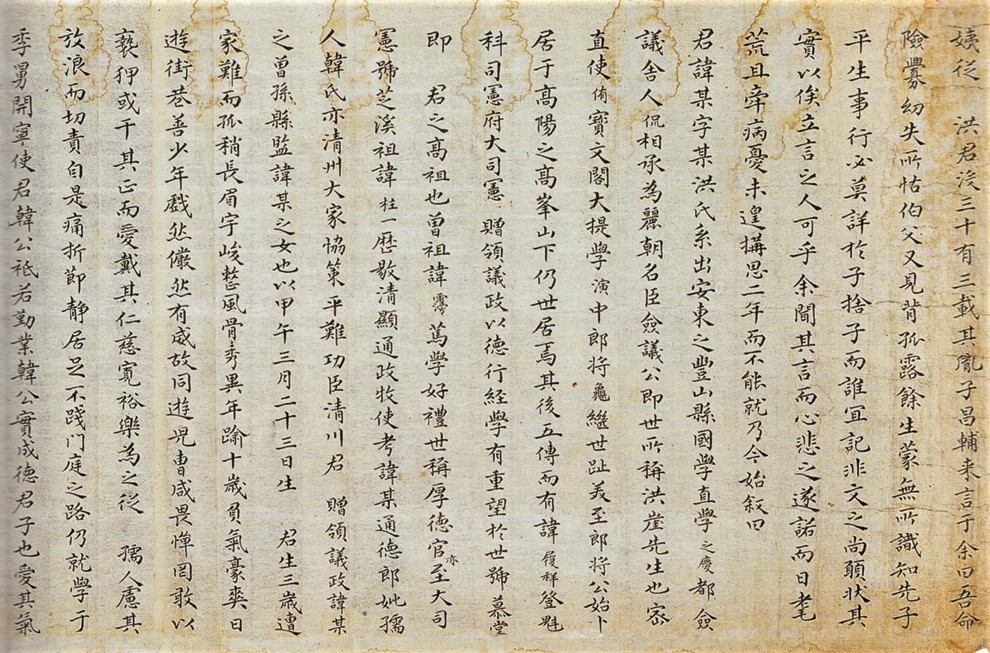 姨從 洪君沒三十有三載其胤子昌輔来言于余曰吾命
險釁幼失所怙伯父又見背孤露餘生蒙無所識知先子
平生事行必莫詳於子捨子而誰宜記非文之尚願状其
實以俟立言之人可乎余聞其言而心悲之遂諾而日耄
荒且牽病憂未遑搆思二年而不能就乃今始叙曰
君諱某字某洪氏系出安東之豊山縣國學直學之慶都僉
議舍人侃相承為麗朝名臣僉議公即世所称洪崖先生也密
直使侑寶文閣大提學演中郎将龜繼世趾美至郎将公始卜
居于高陽之高峯山下仍世居焉其後五傳而有諱履祥登魁
科司憲府大司憲 贈領議政以德行経學有重望於世號慕堂
即 君之高祖也曽祖諱霶篤學好禮世稱厚德官亦至大司
憲號芝溪祖諱柱一歷敭清顯通政牧使考諱某通德郎妣孺
人韓氏亦清州大家協策平難功臣清川君 贈領議政諱某
之曽孫縣監諱某之女也以甲午三月二十三日生 君生三歳遭
家難而孤稍長眉宇峻整風骨秀異年踰十歳負氣豪爽日
遊街巷善少年戲然儼然有威故同遊児曹咸畏憚罔敢以
褻狎或干其正而愛戴其仁慈寛裕樂為之從 孺人慮其
放浪而切責自是痛折節静居足不踐门庭之路仍就學于
季舅開寧使君韓公祗若勤業韓公實成德君子也愛其氣